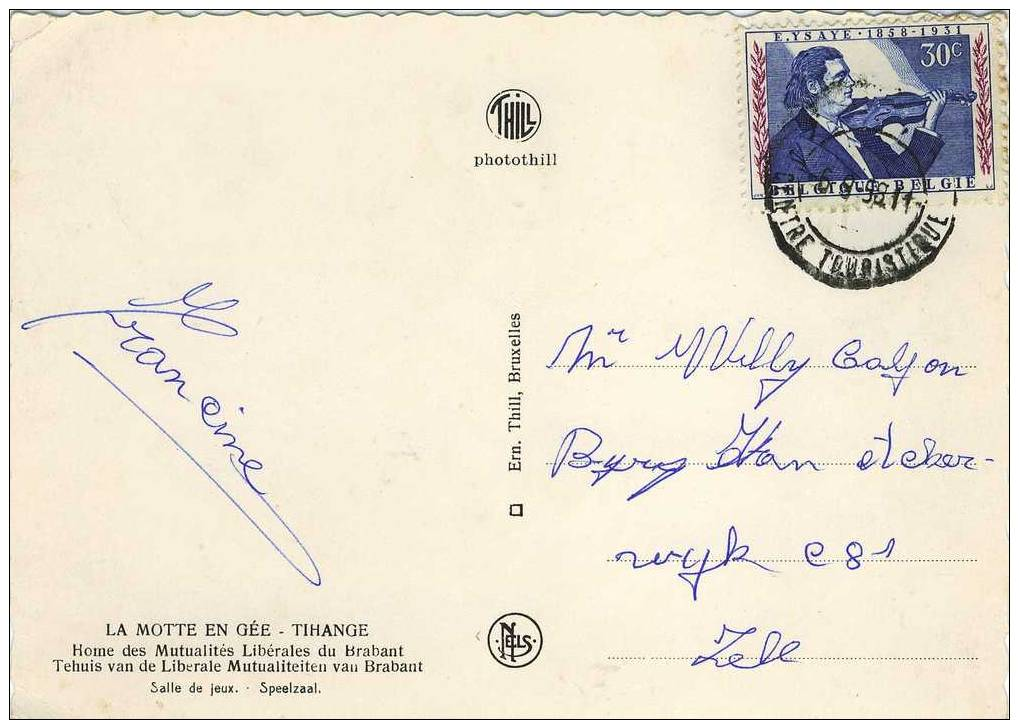 E. YSAYE · 1858 - 1931
30c
BELGIQUE BELGIE
CENTRE TOURISTIQUE
THILL
photothill
Ern. Thill, Bruxelles
Francine
Mr Willy Calfon
wyk C81
Zele
LA MOTTE EN GÉE - TIHANGE
Home des Mutualités Libérales du Brabant
Tehuis van de Liberale Mutualiteiten van Brabant
Salle de jeux. - Speelzaal.
NELS